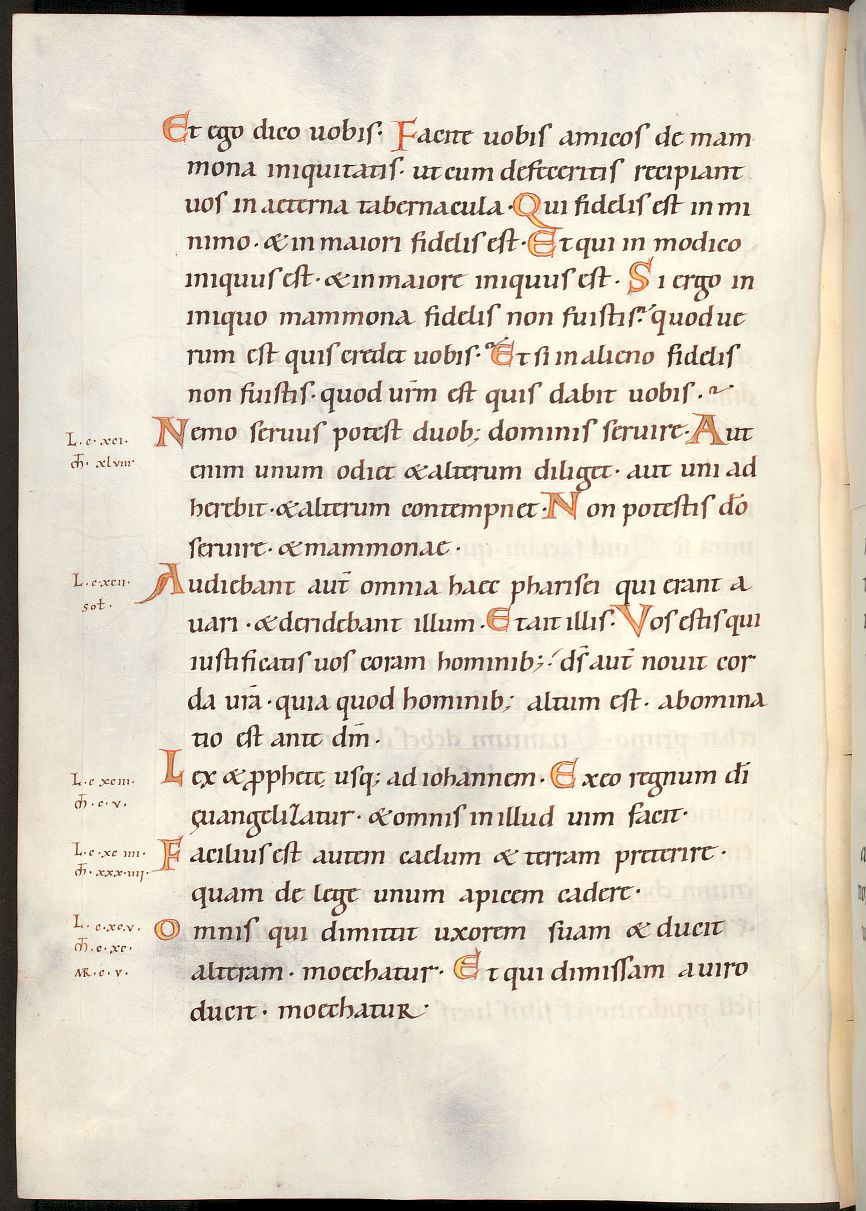 Et ego dico uobis. Facite uobis amicos de mam
mona iniquitatis. ut cum defeceritis recipiant
uos in aeterna tabernacula. Qui fidelis est in mi
nimo. & in maiori fidelis est. Et qui in modico
iniquus est. & in maiore iniquus est. Si ergo in
iniquo mammona fidelis non fuistis. quod ue
rum est quis credet uobis. Et si in alieno fidelis
non fuistis. quod urm̄ est quis dabit uobis.
L. c. xci.
Nemo seruus potest duob; dominis seruire. Aut
m̄. xlviii
enim unum odiet & alterum diliget. aut uni ad
herebit. & alterum contempnet. Non potestis dō
seruire. & mammonae.
L. c. xcii.
sol.
Audiebant aut̄ omnia haec pharisei qui erant a
uari. & deridebant illum. Et ait illis. Vos estis qui
iustificatis uos coram hominib; ds̄ aut̄ nouit cor
da urā. quia quod hominib; altum est. abomina
tio est ante dm̄.
L. c. xciii.
m̄. c. v.
Lex & ꝓphetę usq; ad iohannem. Ex eo regnum dī
ęuangelizatur. & omnis in illud uim facit.
L. c. xc iiii.
m̄. xxx.iiii.
Facilius est autem caelum & terram preterire.
quam de lege unum apicem cadere.
L. c. xc.v.
m̄. c. xc.
MR. c. v.
Omnis qui dimittit uxorem suam & ducit
alteram. moechatur. Et qui dimissam a uiro
ducit. moechatur.